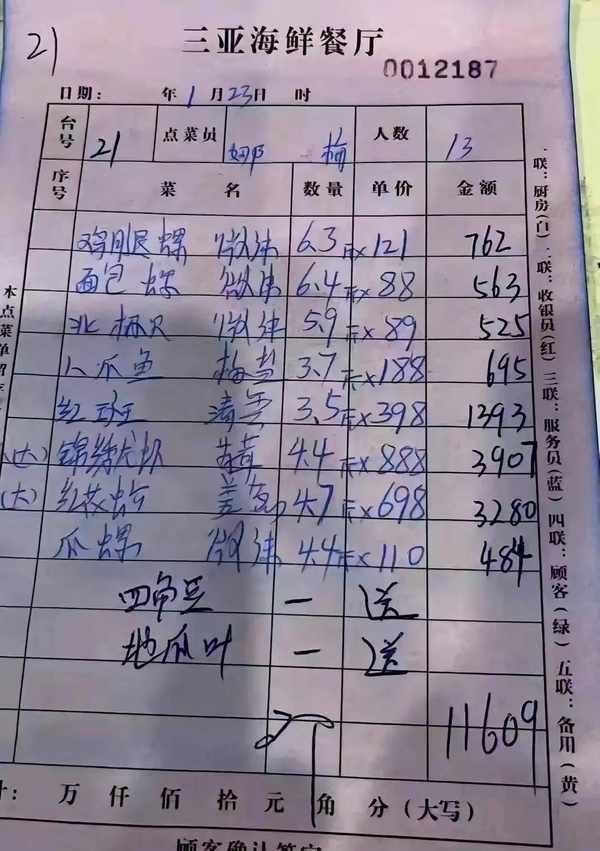 21
三亚海鲜餐厅
0012187
日期: 年 1 月 23 日 时
台号 21 点菜员 娜 梅 人数 13
序号 菜名 数量 单价 金额
鸡腿螺 6.3 斤×121 762
面包螺 6.4 斤×88 563
北极贝 5.9 斤×89 525
八爪鱼 梅盐 3.7 斤×188 695
红斑 清蒸 3.5 斤×398 1393
(大) 锦绣龙虾 4.4 斤×888 3907
(大) 红花蟹 姜葱 4.7 斤×698 3280
瓜螺 4.4 斤×110 484
四角豆 一 送
地瓜叶 一 送
11609
计: 万 仟 佰 拾 元 角 分(大写)
顾客确认签字
本点菜单
一联:厨房(白) 二联:收银员(红) 三联:服务员(蓝) 四联:顾客(绿) 五联:备用(黄)